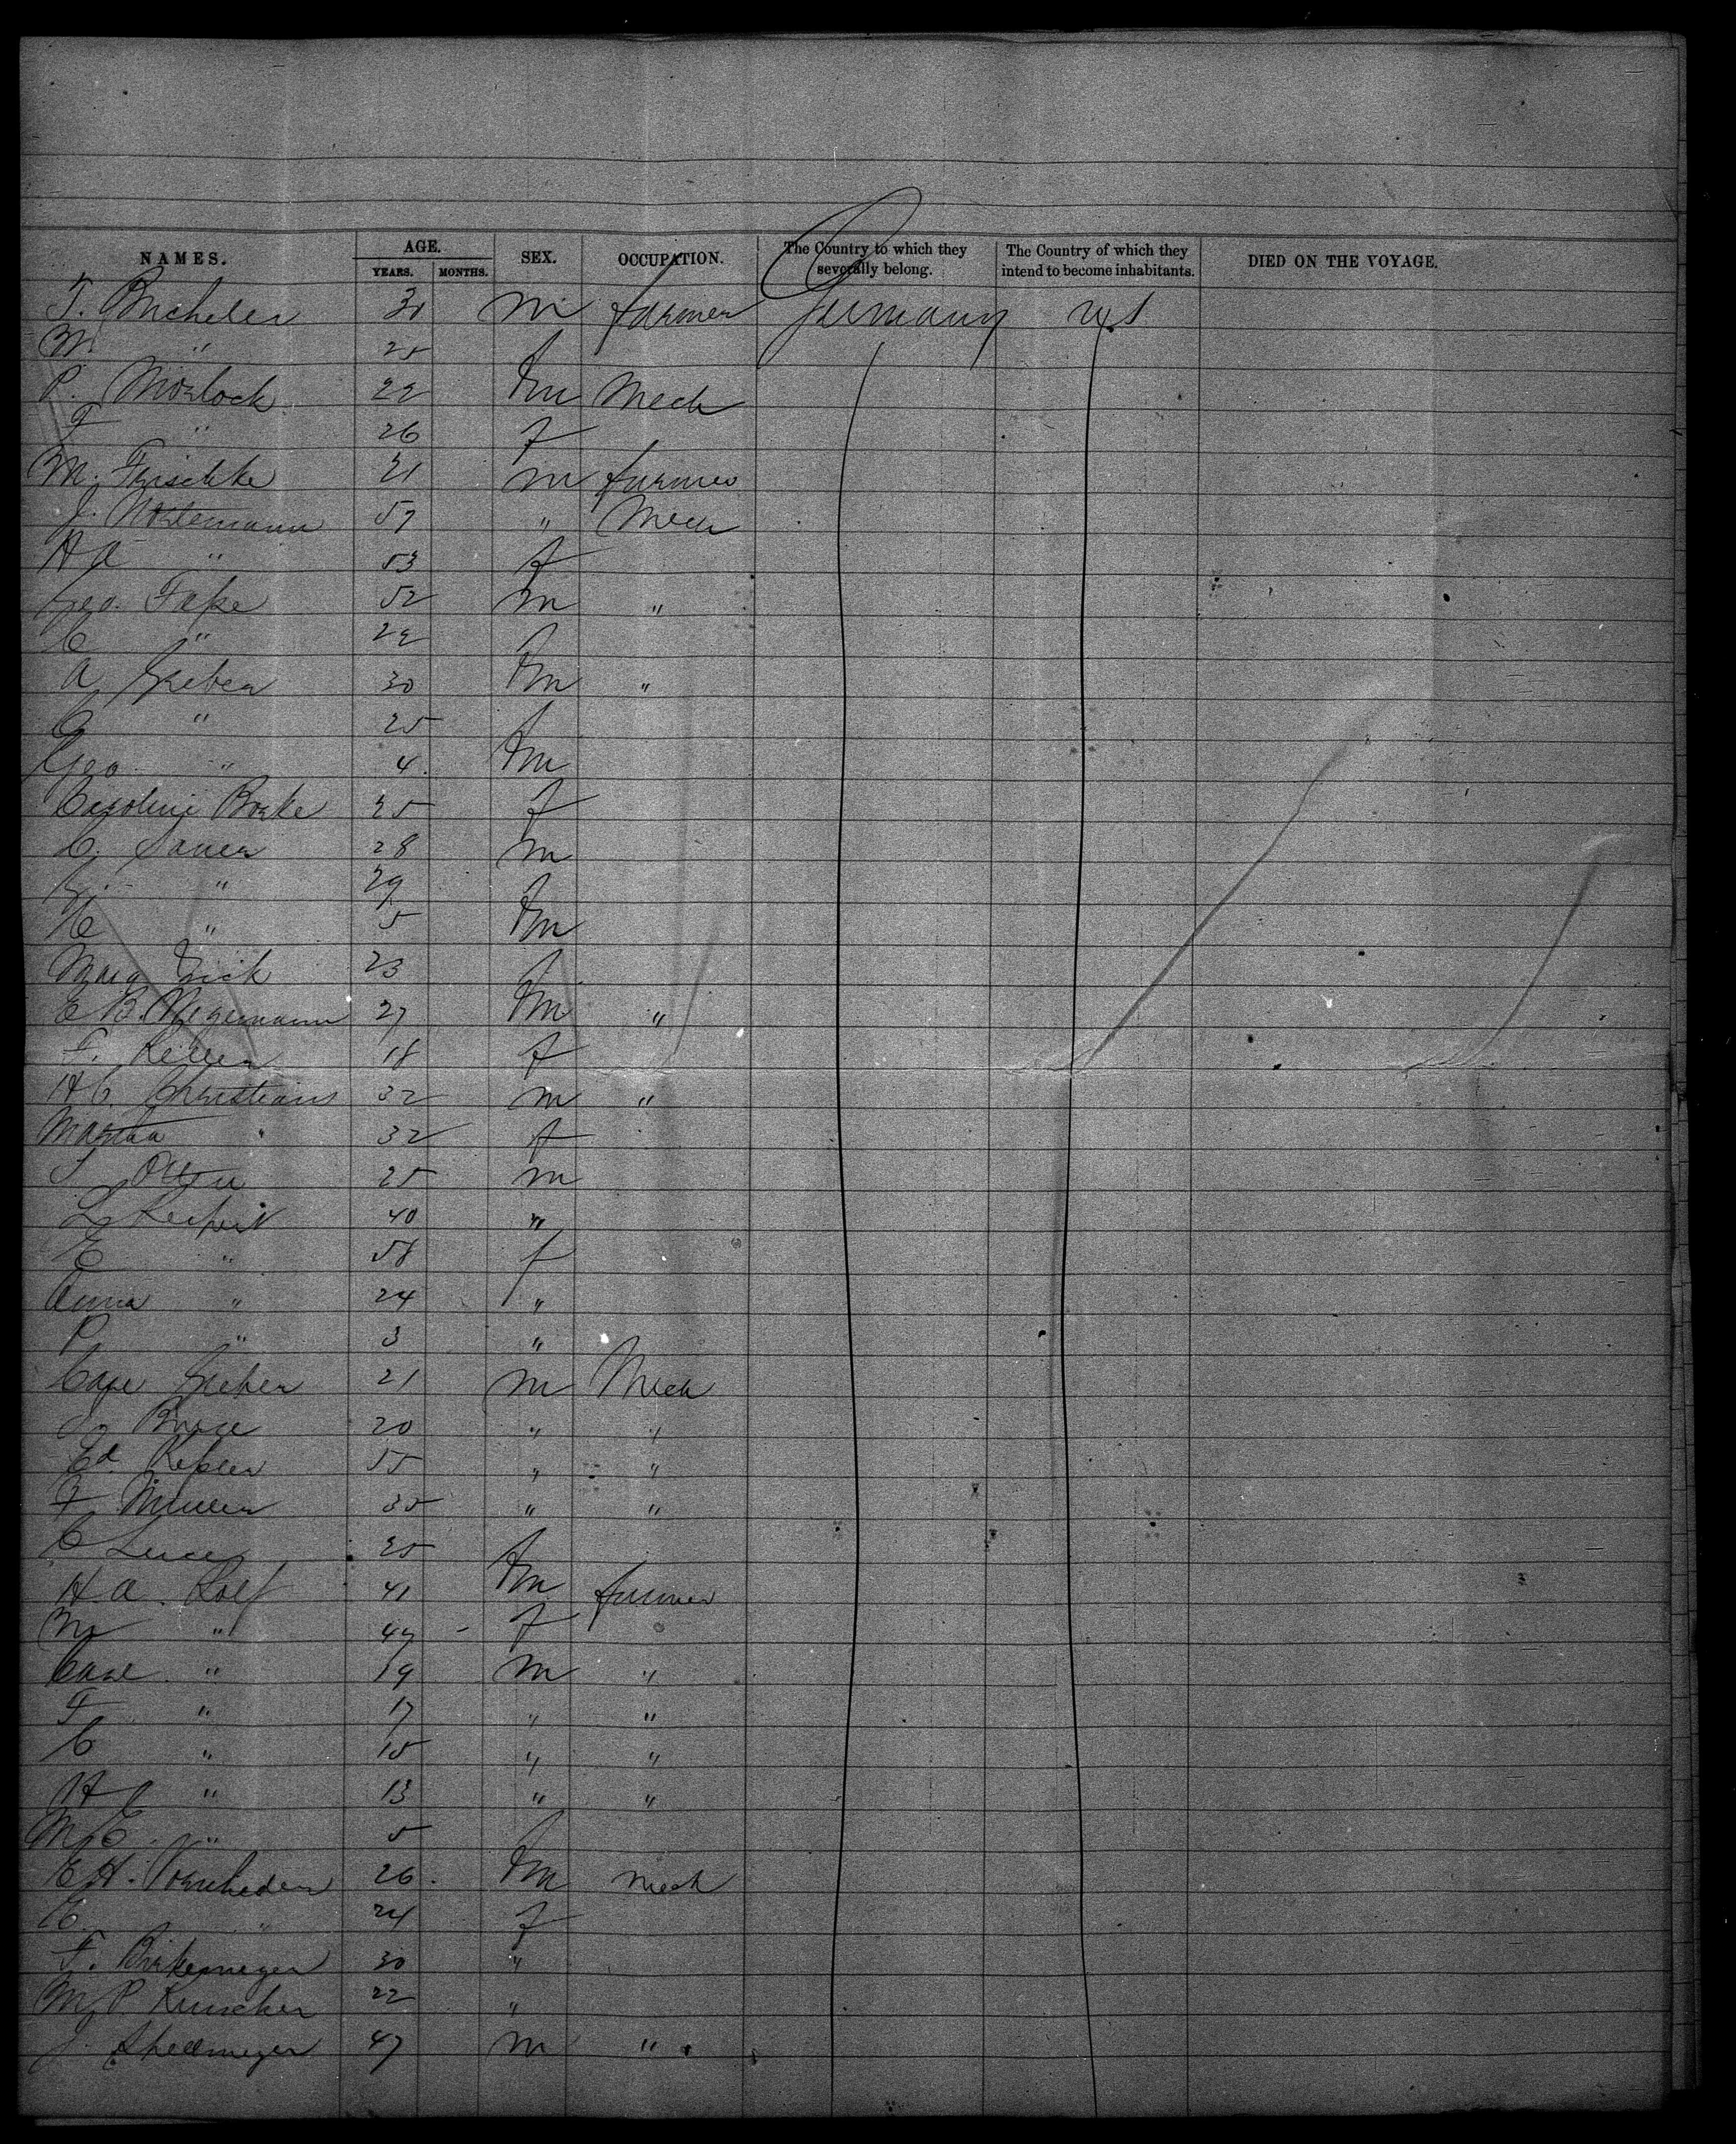 NAMES. AGE. YEARS. MONTHS. SEX. OCCUPATION. The Country to which they severally belong. The Country of which they intend to become inhabitants. DIED ON THE VOYAGE.
T. Bucheler 30 m farmer Germany U.S
M. " 25 f
P. Morlock 22 m Mech
F " 26 f
M. Frischke 21 m farmer
J. Nortemann 57 " Mech
H A " 53 f
Geo. Fape 52 m "
C " 22 f
A Greber 30 m "
C " 25 f
Geo " 4 m
Caroline Borke 25 f
C. Sauer 28 m
" 29 f
C " 5 m
Marg Frick 23 f
E B. Wegemann 27 m "
F. Keller 18 f
H C. Christians 32 m "
Martha " 32 f
J Otten 25 m
L 40 "
E " 58 f
Anna " 24 "
P " 3 "
Carl Gieher 21 m Mech
Bruse 20 " "
Ed. Kepler 55 " "
F Muller 35 " "
C 25 f
H. A. Rolf 41 m farmer
M " 49 f
Carl " 19 m "
F " 17 " "
C " 15 " "
H " 13 " "
M C. " 5 f
E H. Vornheder 26 m Mech
E. " 24 f
F. Birkemeyer 30 "
M P Kruscher 22 "
J. Shellmeyer 47 m "